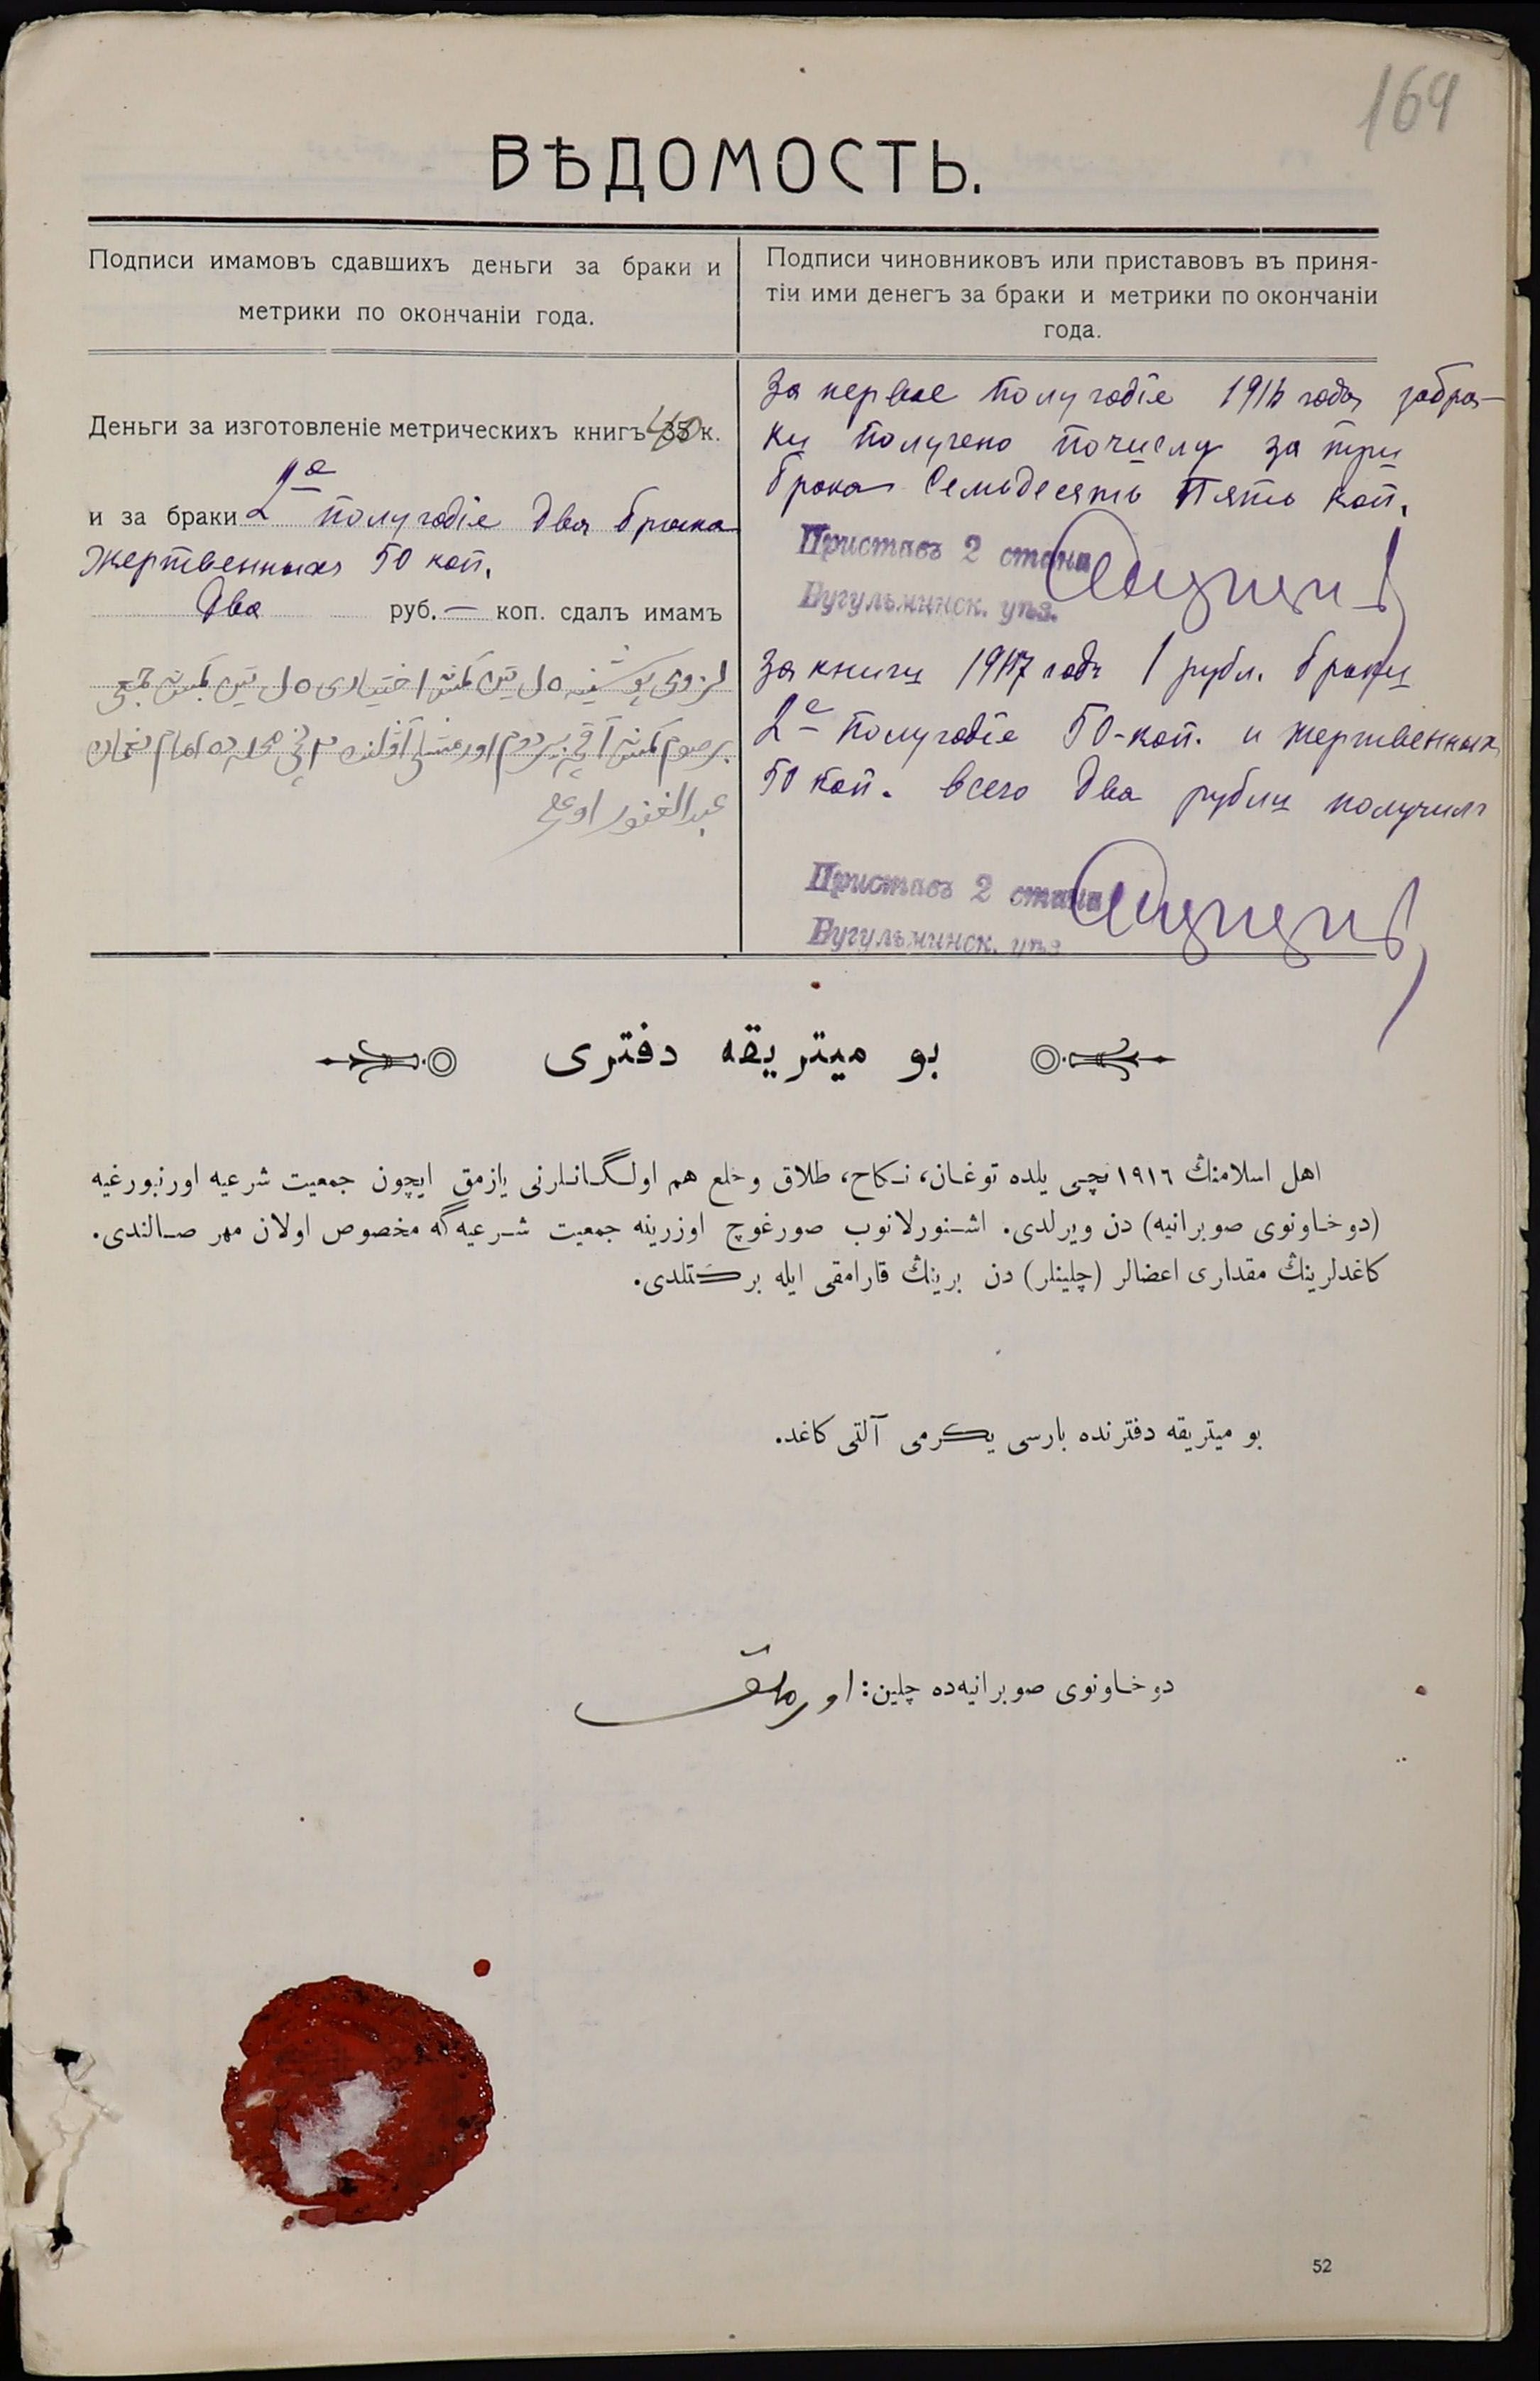 169
ВѢДОМОСТЬ.
Подписи имамовъ сдавшихъ деньги за браки и
метрики по окончаніи года.
Подписи чиновниковъ или приставовъ въ приня-
тіи ими денегъ за браки и метрики по окончаніи
года.
Деньги за изготовленіе метрическихъ книгъ 35 к.
и за браки 2е полугодіе два брака
жертвенныхъ 50 коп.
Два руб. — коп. сдалъ имамъ
امام
عبدالغفور
За первое полугодіе 1916 года за бра-
ки получено по числу за три
брака Семьдесять Пять коп.
Приставъ 2 стана
Бугульминск. уѣз.
За книги 1917 годъ 1 рубл. браки
2е полугодіе 50-коп. и жертвенныхъ
50 коп. всего два рубли получилъ
Приставъ 2 стана
Бугульминск. уѣз
بو ميتريقه دفترى
اهل اسلامنڭ ١٩١٦ نچى يلده توغان، نكاح، طلاق وخلع هم اولگانلرنى يازمق ايچون جمعيت شرعيه اورنبورغيه
(دوخاونوى صوبرانيه) دن ويرلدى. اشنورلانوب صورغوچ اوزرينه جمعيت شرعيه گه مخصوص اولان مهر صالندى.
كاغدلرينڭ مقدارى اعضالر (چلينلر) دن برينڭ قارامقى ايله بركتلدى.
بو ميتريقه دفترنده بارسى يكرمى آلتى كاغد.
دوخاونوى صوبرانيه ده چلين:
52